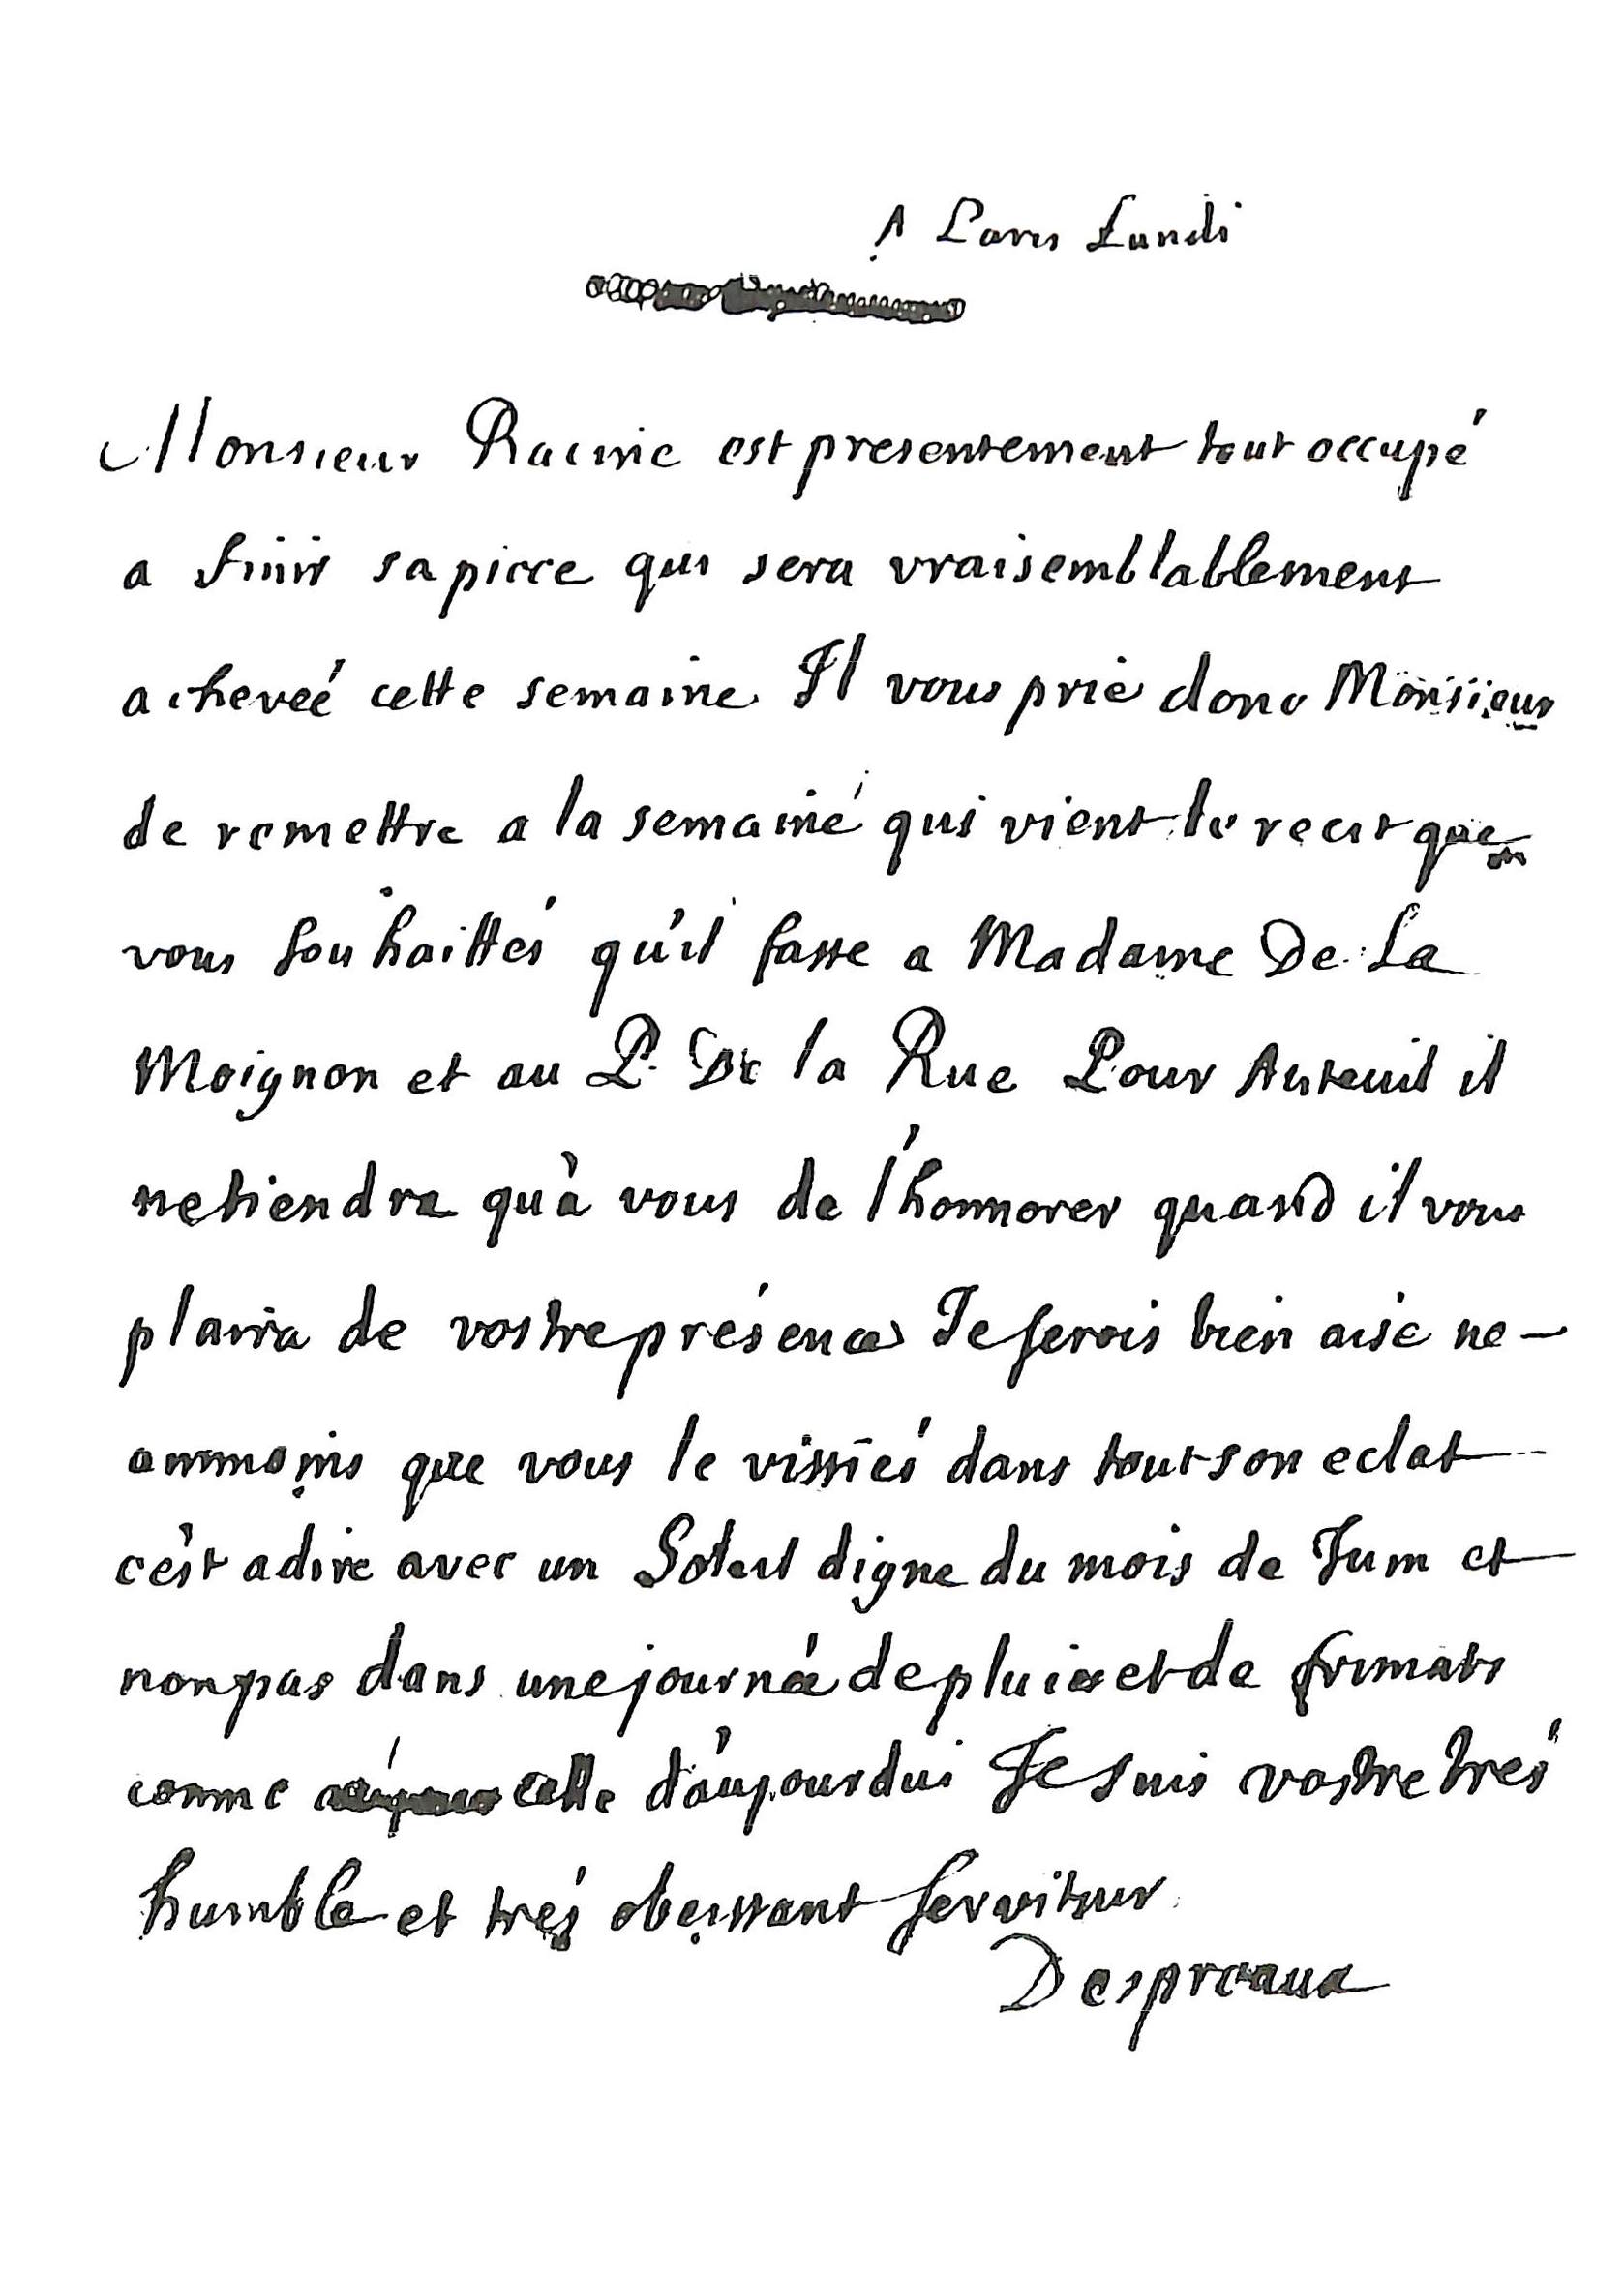 A Paris Lundi
Monsieur Racine est presentement tout occupé
a finir sa piece qui sera vraisemblablement
acheveé cette semaine. Il vous prie donc Monsieur
de remettre a la semaine qui vient le recit que
vous souhaittés qu'il fasse a Madame De La
Moignon et au P. De la Rue Pour Auteuil il
ne tiendra qu'à vous de l'honnorer quand il vous
plaira de vostre présence Je serois bien aise ne-
anmoins que vous le vissiés dans tout son eclat
c'est a dire avec un Soleil digne du mois de Juin et
non pas dans une journée de pluie et de frimats
comme celle d'aujourdui Je suis vostre trés
humble et trés obeissant serviteur
Despreaux